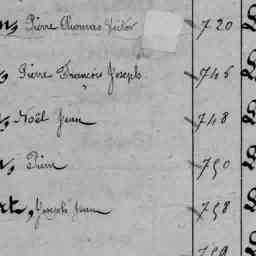 Pierre Thomas Victor 720
Pierre François Joseph 745
Noël Jean 748
Pierre 750
rt, Joseph Jean 758
759